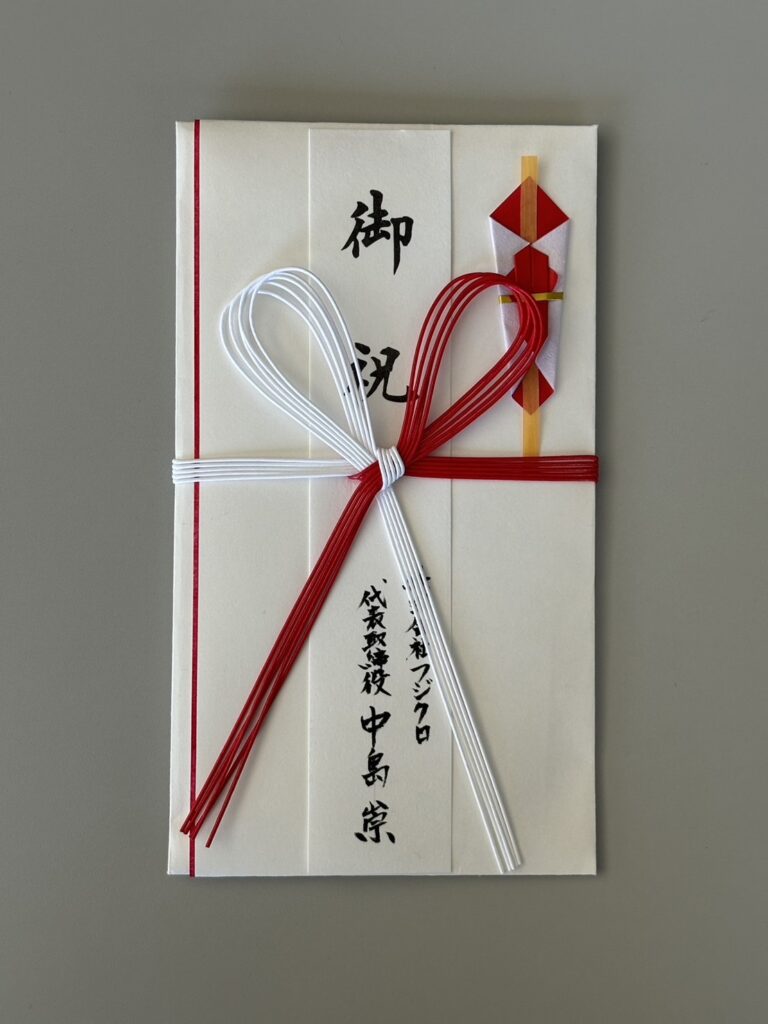 御祝
株式会社フジクロ
代表取締役 中島 崇